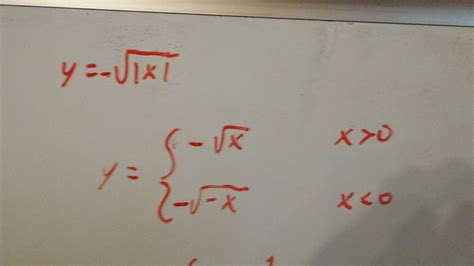 y = -√|x|
y = { -√x x>0
{ -√-x x<0